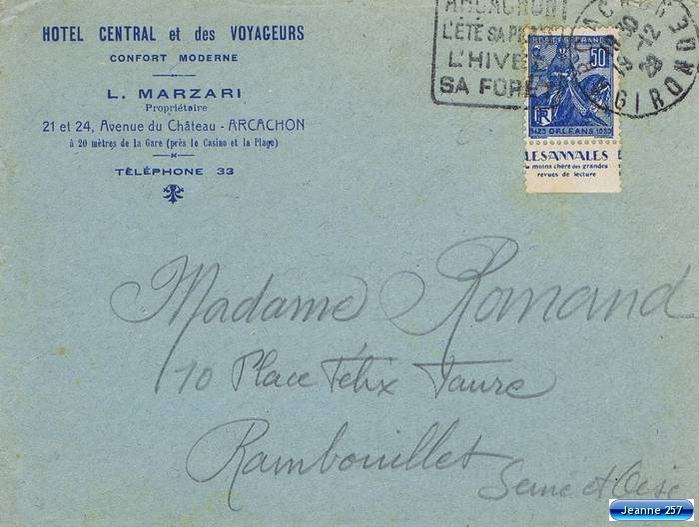 HOTEL CENTRAL et des VOYAGEURS
CONFORT MODERNE
L. MARZARI
Propriétaire
21 et 24, Avenue du Château - ARCACHON
à 20 mètres de la Gare (près le Casino et la Plage)
TÉLÉPHONE 33
ARCACHON
L'ÉTÉ SA
L'HIVER
SA FORET
GIRONDE
50
RF
ORLEANS
LES ANNALES
la moins chère des grandes
revues de lecture
Madame Romand
10 Place Félix Faure
Rambouillet
Seine et Oise
Jeanne 257